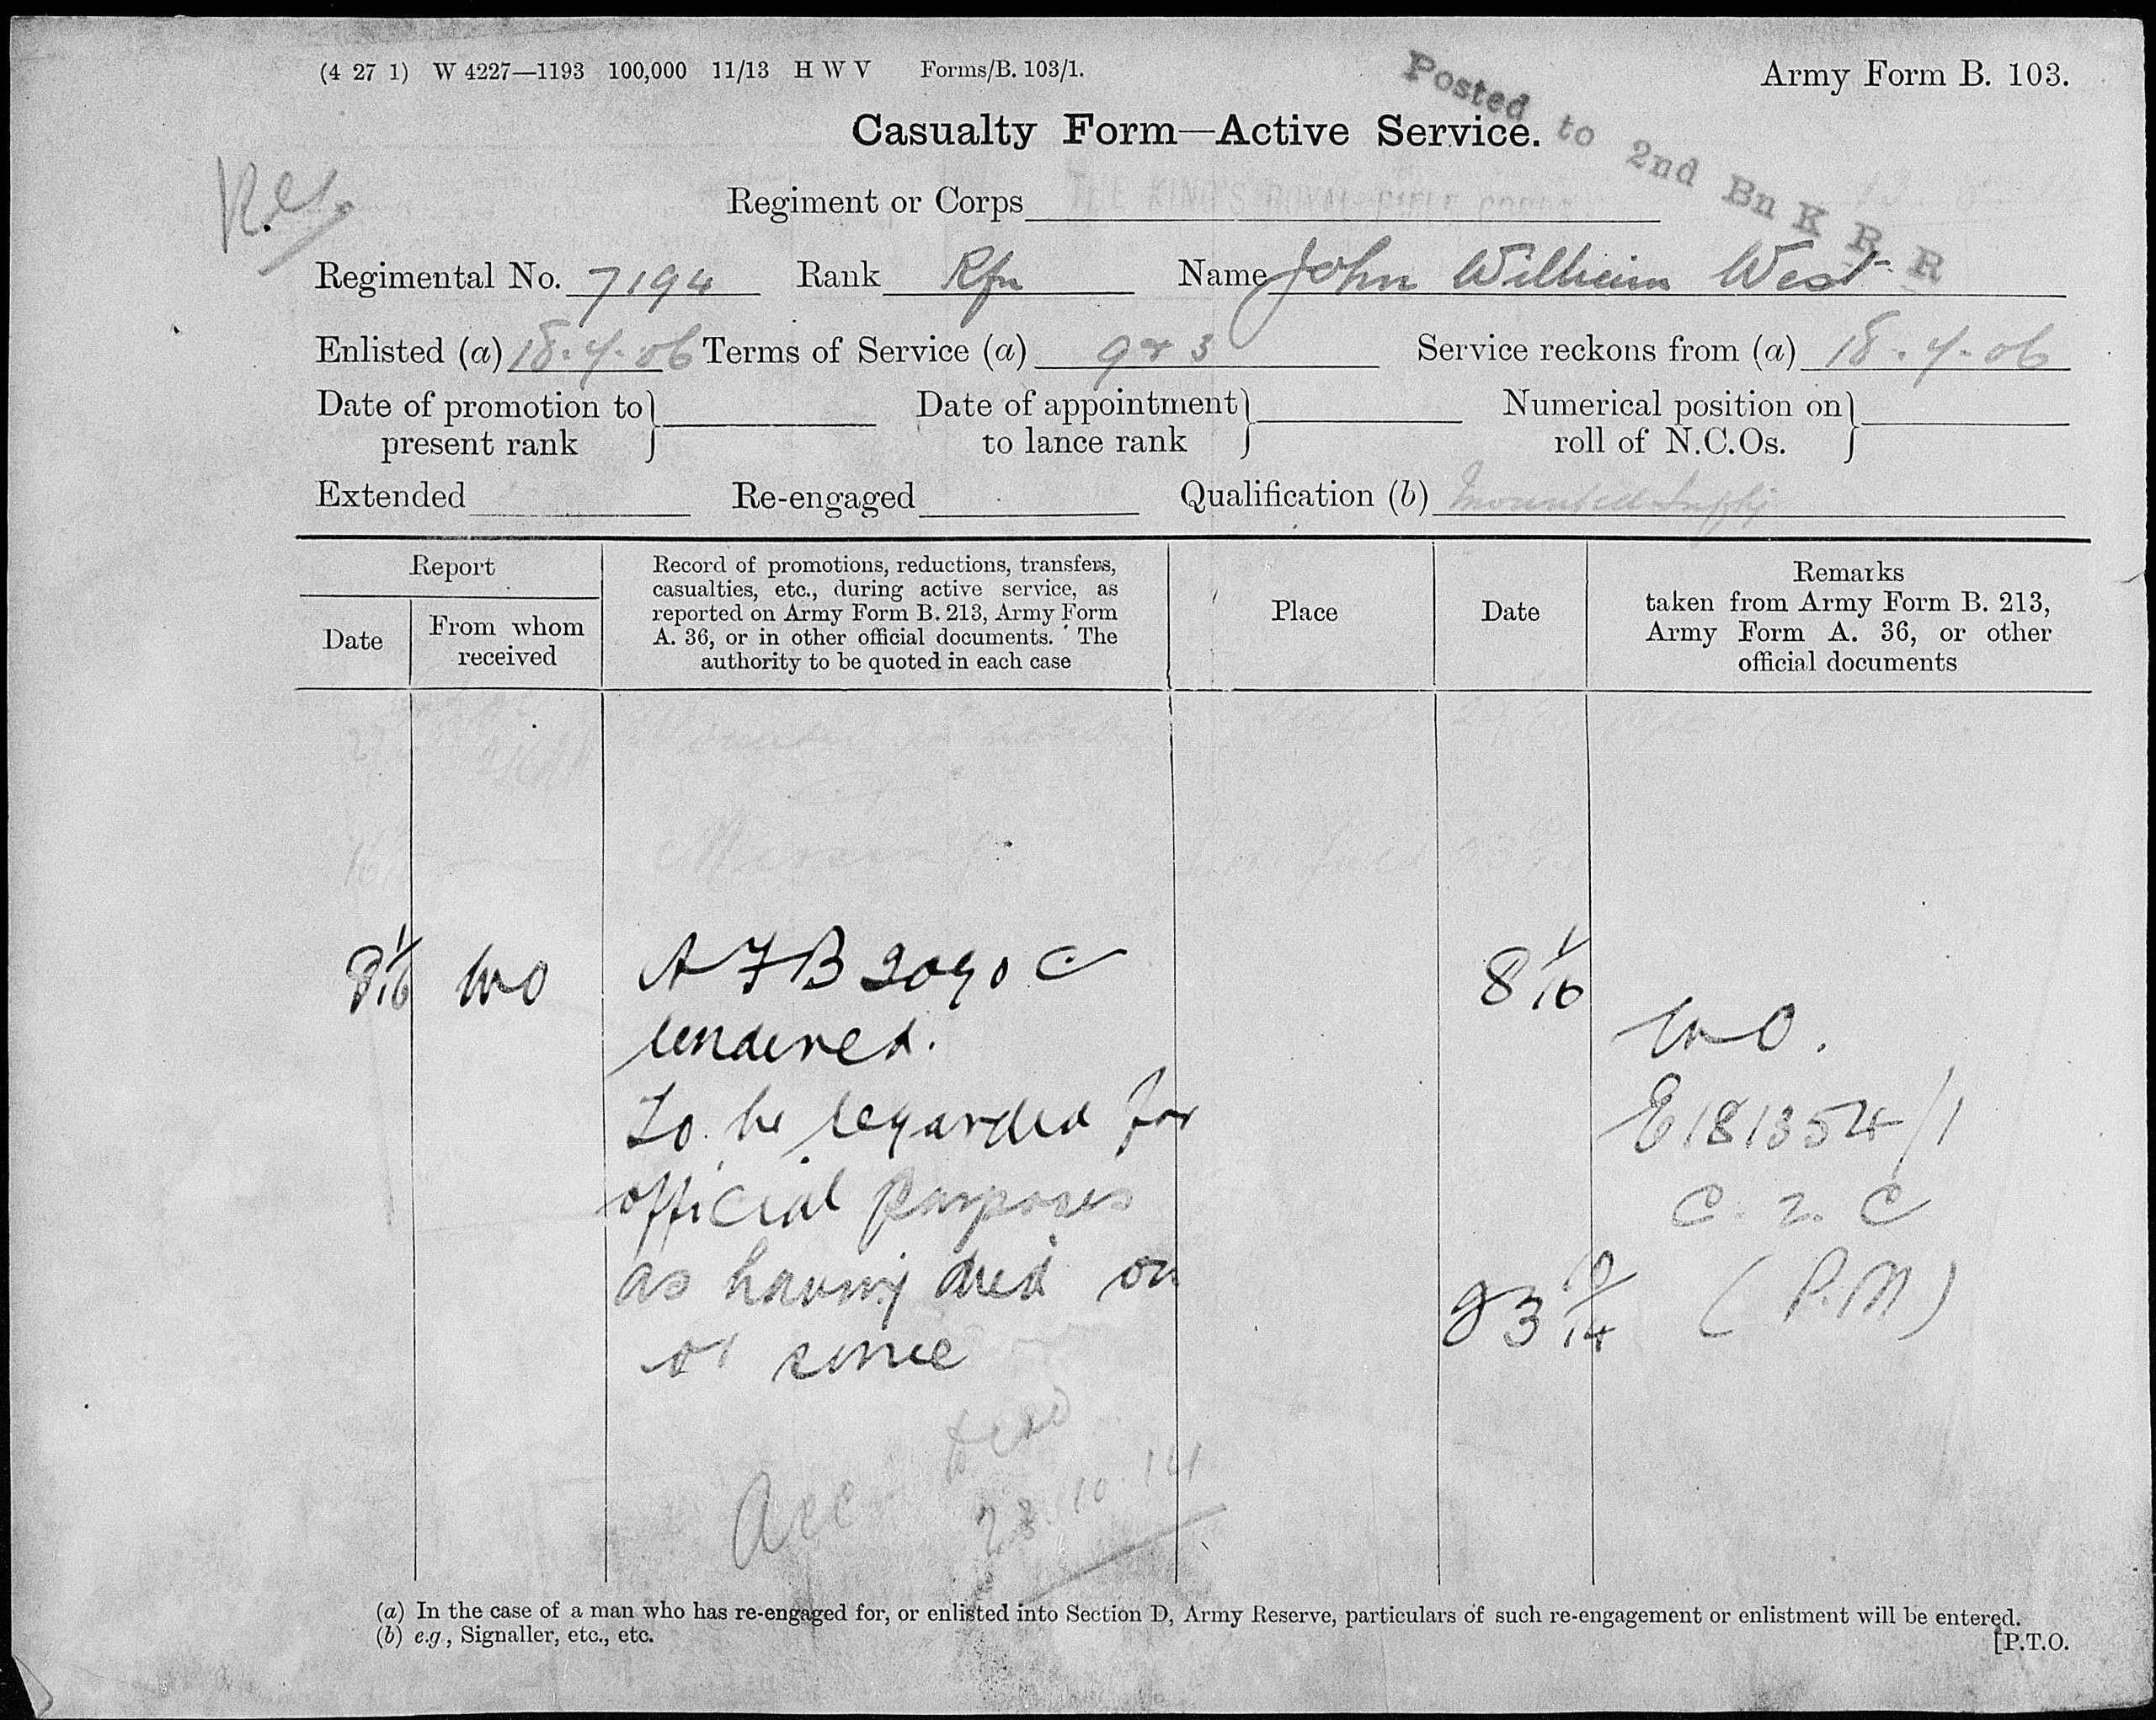 (4 27 1) W 4227—1193 100,000 11/13 H W V Forms/B. 103/1.
Army Form B. 103.
Posted to 2nd Bn K R R
Casualty Form—Active Service.
Regiment or Corps THE KING'S ROYAL RIFLE CORPS
Regimental No. 7194 Rank Rfn Name John William West
Enlisted (a) 18.4.06 Terms of Service (a) 9 & 3 Service reckons from (a) 18.4.06
Date of promotion to present rank
Date of appointment to lance rank
Numerical position on roll of N.C.Os.
Extended Re-engaged Qualification (b) Mounted
Report
Date
From whom received
Record of promotions, reductions, transfers,
casualties, etc., during active service, as
reported on Army Form B. 213, Army Form
A. 36, or in other official documents. The
authority to be quoted in each case
Place
Date
Remarks
taken from Army Form B. 213,
Army Form A. 36, or other
official documents
Missing
8 1/16 WO A F B 2090 C 8 1/16
tendered. WO.
To be regarded for E181354/1
official purposes C. 2. C
as having died on 23 10/14 (P.M)
or since
Acc dead
23.10.14
(a) In the case of a man who has re-engaged for, or enlisted into Section D, Army Reserve, particulars of such re-engagement or enlistment will be entered.
(b) e.g, Signaller, etc., etc.
[P.T.O.